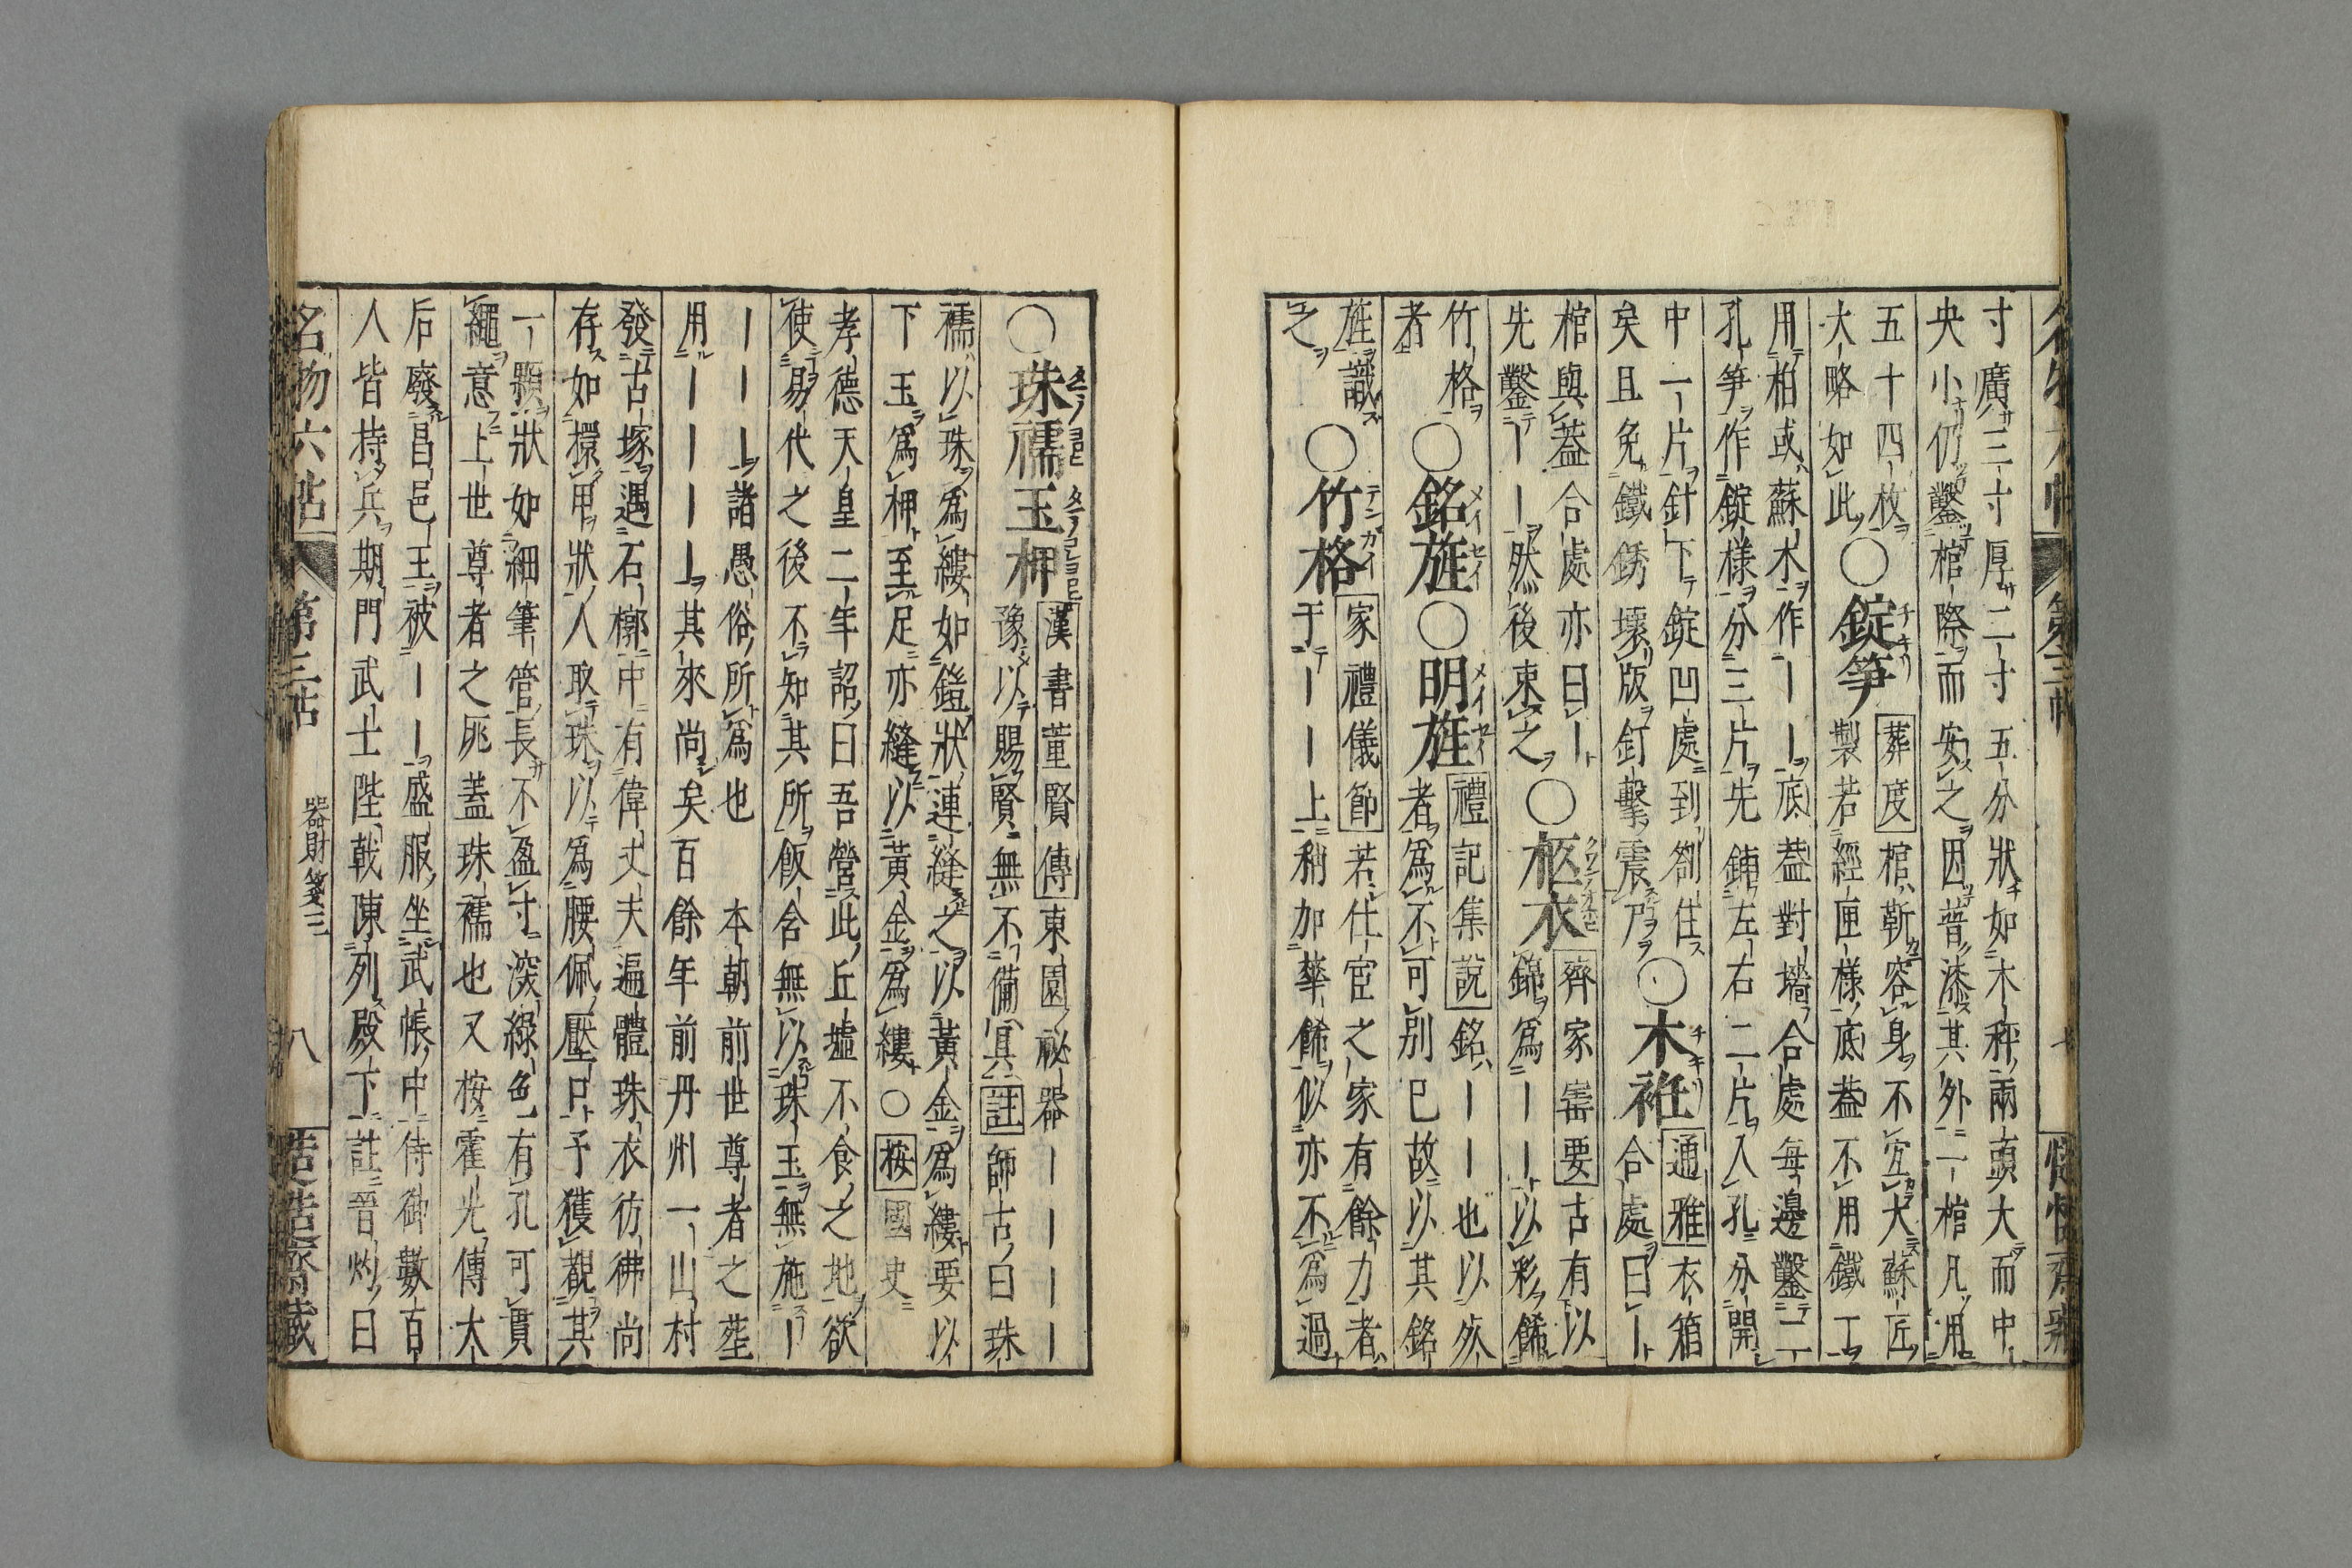 寸廣三寸厚二寸五分狀如木秤兩頭大而中
央小仍鑿棺際而安之因普漆其外一棺凡用
五十四枚
大略如此
○錠笋
葬度
棺斲容身不宜大蘇匠
製若經匣樣底葢不用鐵丁
用柏或蘇木作ーー底葢對墻合處每邊鑿二
孔笋作錠樣分三片先鋪左右二片入孔分開
中一片針下錠凹處到劄住
矣且免鐵銹壞版釘擊震尸
○木袵
通雅
衣箱
合處曰ー
棺與蓋合處亦曰ー
先鑿ーー然後束之
○柩衣
齊家寚要
古有以
錦爲ーー以彩餙
竹格
者
○銘旌○明旌
禮記集說
銘ーー也以死
者爲不可別已故以其銘
旌識
之
○竹格
家禮儀節
若仕宦之家有餘力者
于ーー上稍加華餙似亦不爲過
○珠襦玉柙
漢書董賢傳
東園祕器ーーーー
豫以賜賢無不備具註師古曰珠
襦以珠爲縷如鎧狀連縫之以黃金爲縷要以
下玉爲柙至足亦縫以黃金爲縷○桉國史
孝德天皇二年詔曰吾營此丘墟不食之地欲
使易代之後不知其所飯含無以珠玉無施ー
ーーー諸愚俗所爲也　本朝前世尊者之葬
用ーーーー其來尚矣百餘年前丹州一山村
發古塚遇石槨中有偉丈夫遍體珠衣彷彿尚
存如擐甲狀人取珠以爲腰佩壓口予獲覩其
一顆狀如細筆管長不盈寸深綠色有孔可貫
繩意上世尊者之斂蓋珠襦也又桉霍光傳太
后廢昌邑王被ーー盛服坐武帳中侍御數百
人皆持兵期門武士陛戟陳列殿下註晉灼曰
名物六帖
第三帖
器財箋三
八